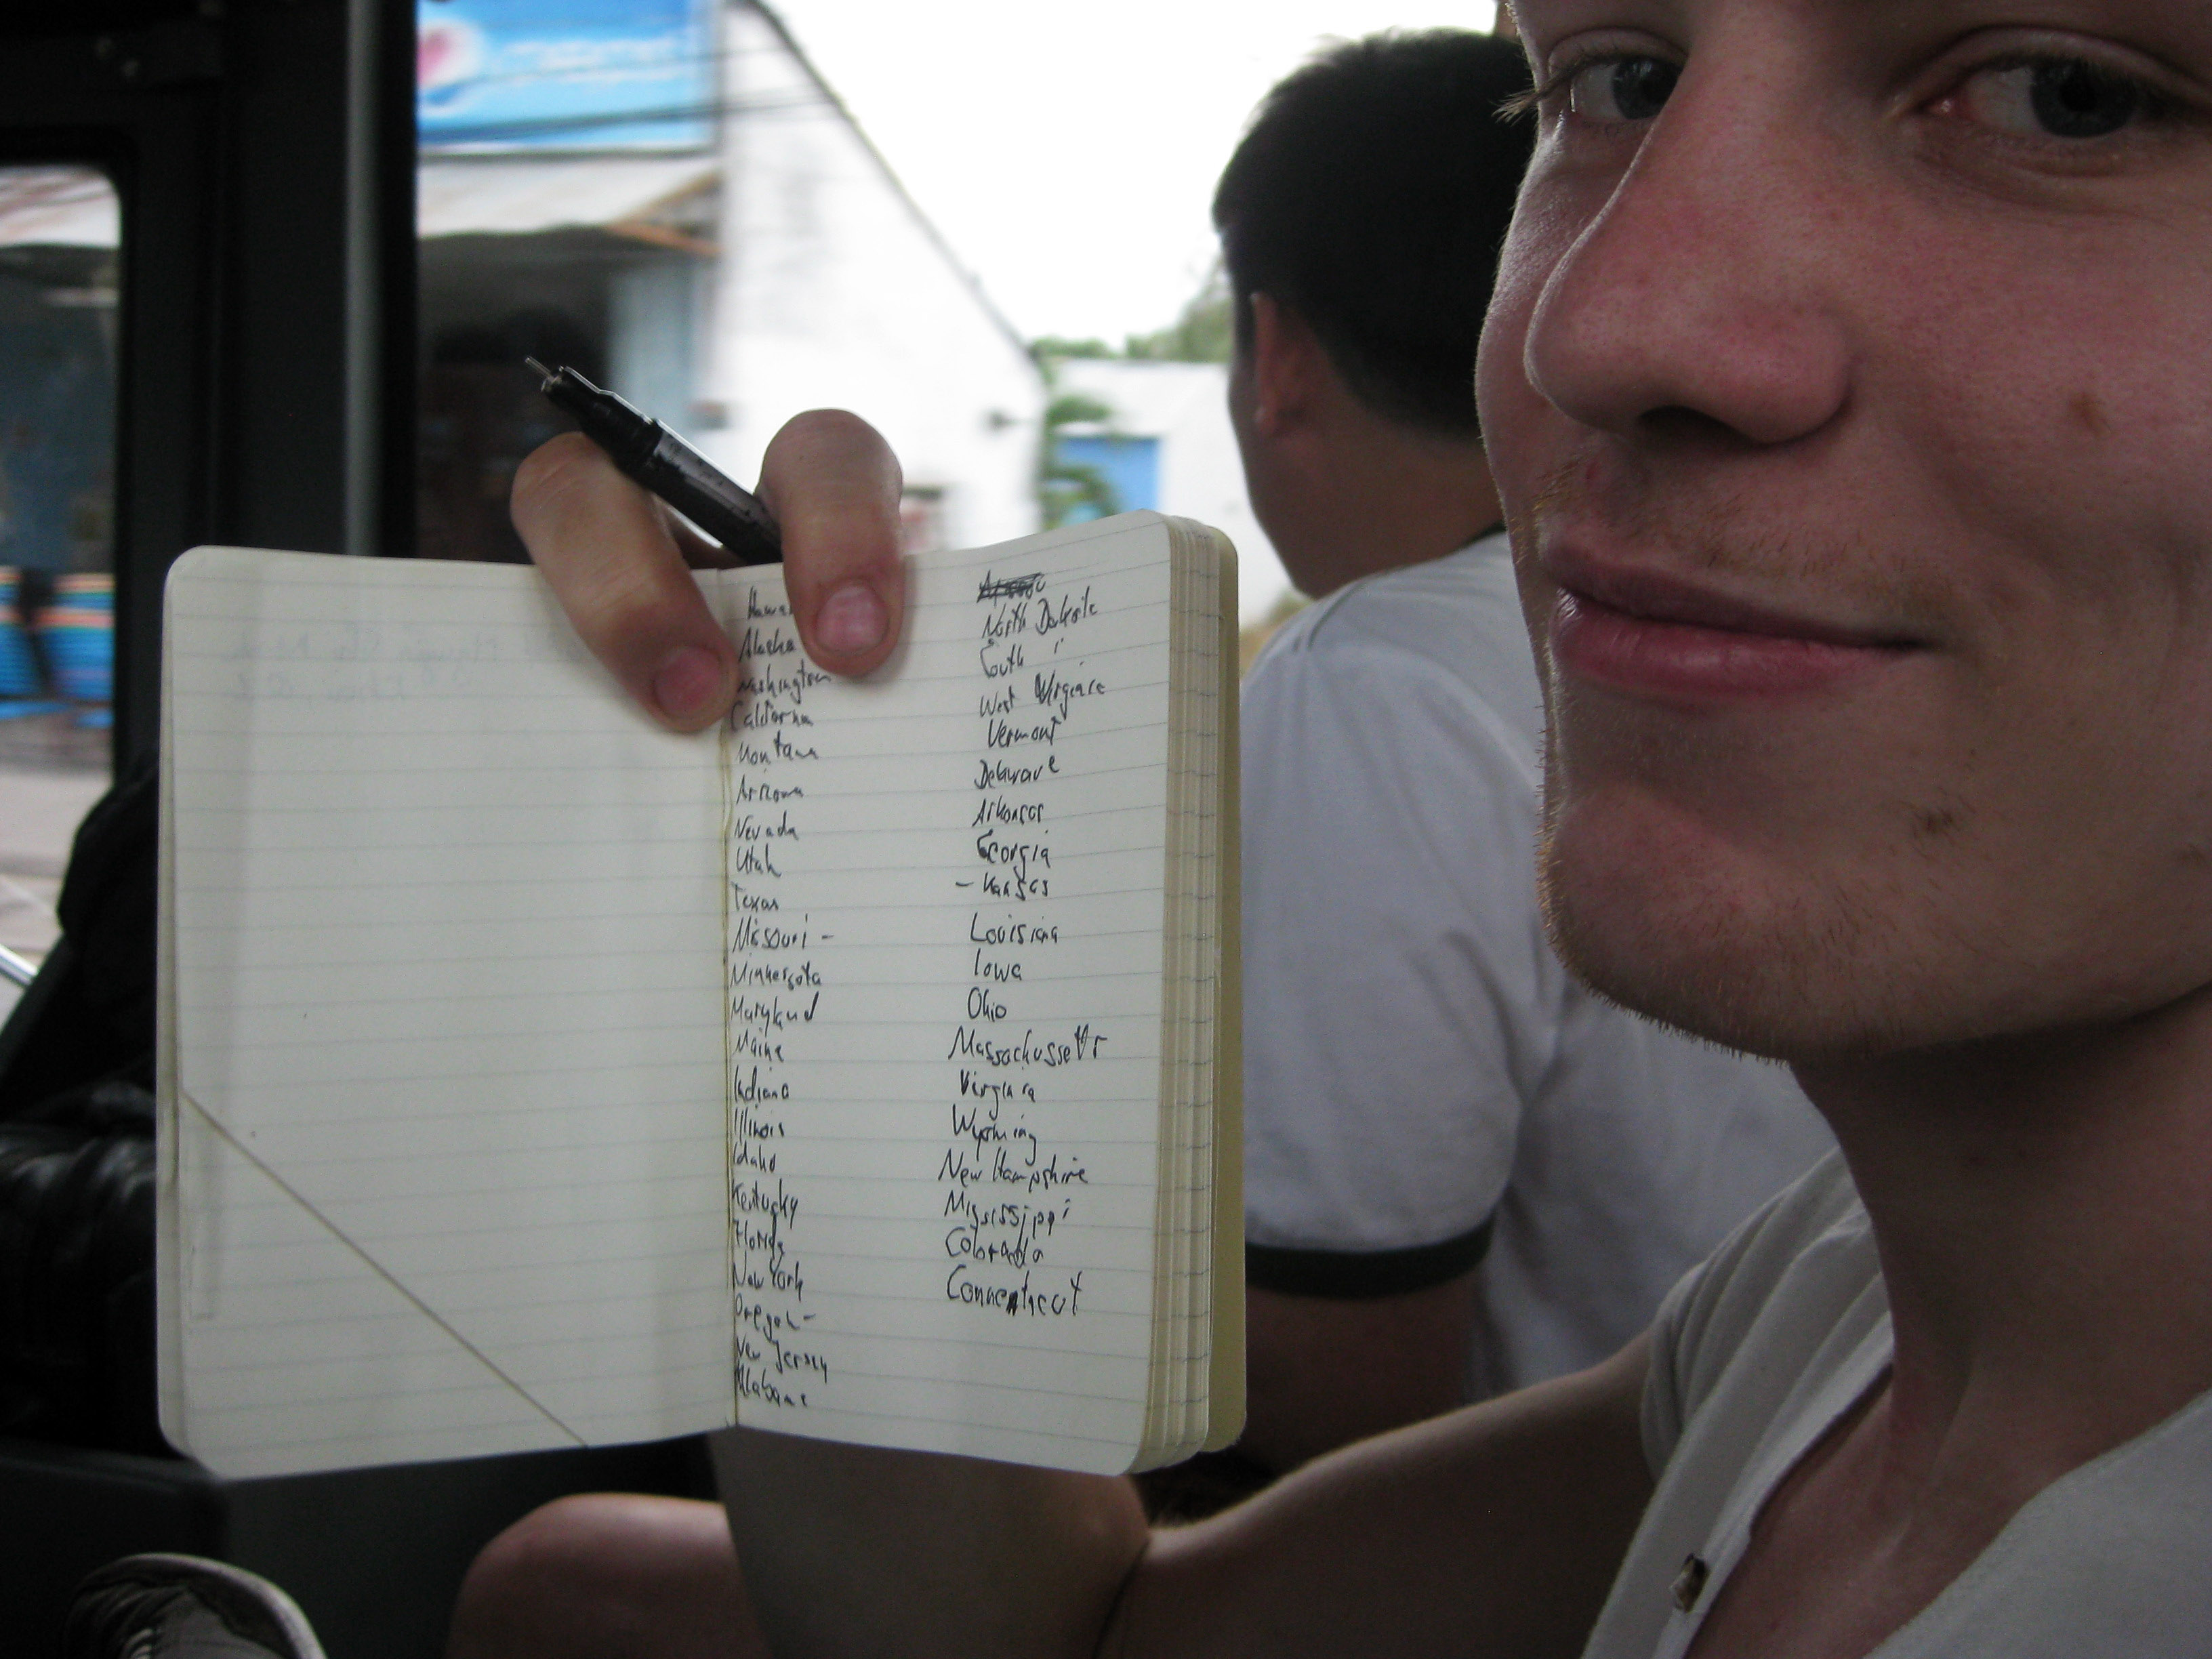 Hawai
Alaska
Washington
California
Montana
Arizona
Nevada
Utah
Texas
Missouri -
Minnesota
Maryland
Maine
Indiana
Illinois
Idaho
Kentucky
Florida
New York
Oregon -
New Jersey
Alabama
North Dakota
South "
West Virginia
Vermont
Delaware
Arkansas
Georgia
- Kansas
Louisiana
Iowa
Ohio
Massachussetts
Virginia
Wyoming
New Hampshire
Mississippi
Colorado
Conneticut